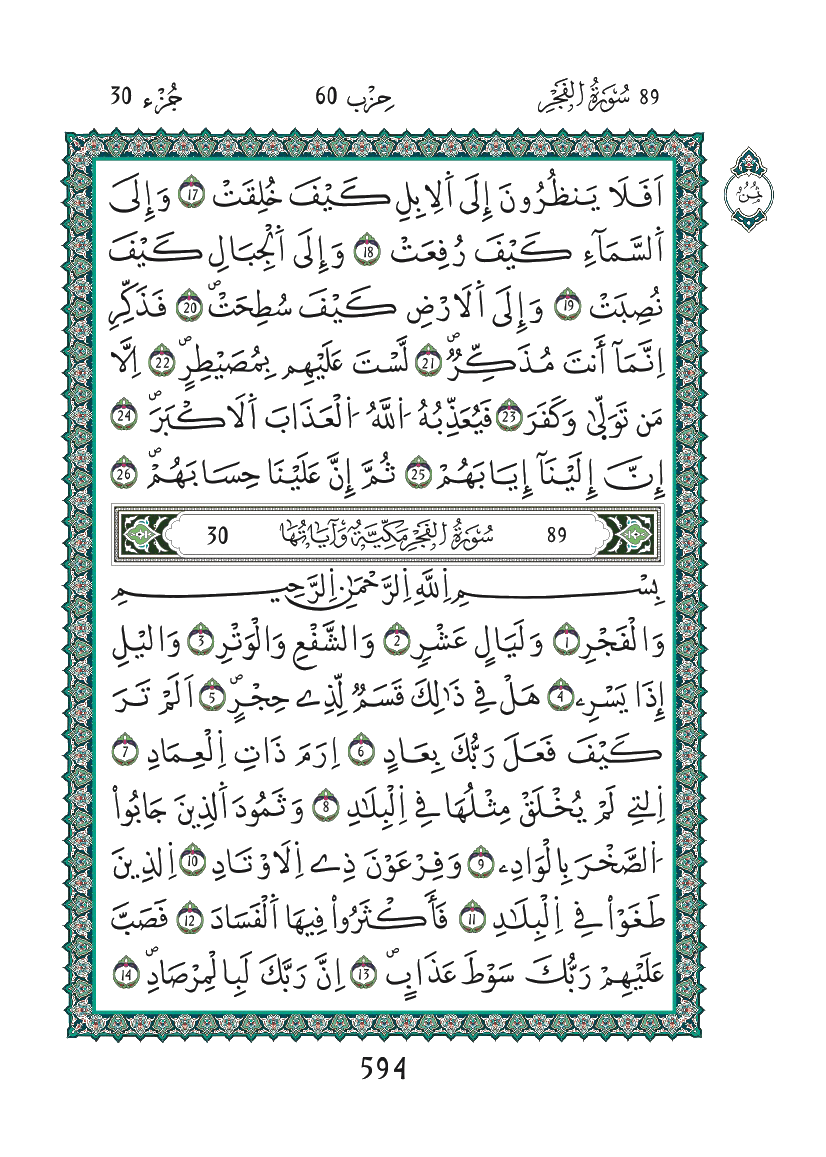 89 سُورَةُ الْفَجْرِ حِزْب 60 جُزْء 30
ثُمُن
اَفَلَا يَنظُرُونَ إِلَى اَلِابِلِ كَيْفَ خُلِقَتْ 17 وَإِلَى
اَلسَّمَآءِ كَيْفَ رُفِعَتْ 18 وَإِلَى اَلْجِبَالِ كَيْفَ
نُصِبَتْ 19 وَإِلَى اَلَارْضِ كَيْفَ سُطِحَتْۖ 20 فَذَكِّرِ
اِنَّمَآ أَنتَ مُذَكِّرٌۖ 21 لَّسْتَ عَلَيْهِم بِمُصَيْطِرٍۖ 22 اِلَّا
مَن تَوَلّىٰ وَكَفَرَ 23 فَيُعَذِّبُهُ اُللَّهُ اُلْعَذَابَ اَلَاكْبَرَۖ 24
إِنَّ إِلَيْنَآ إِيَابَهُمْ 25 ثُمَّ إِنَّ عَلَيْنَا حِسَابَهُمْۖ 26
89 سُورَةُ الْفَجْرِ مَكِّيَّةٌ وَآيَاتُهَا 30
بِسْمِ اِللَّهِ اِلرَّحْمَٰنِ اِلرَّحِيمِ
وَالْفَجْرِ 1 وَلَيَالٍ عَشْرٍ 2 وَالشَّفْعِ وَالْوَتْرِ 3 وَاليْلِ
إِذَا يَسْرِۦ 4 هَلْ فِي ذَٰلِكَ قَسَمٌ لِّذِے حِجْرٍۖ 5 اَلَمْ تَرَ
كَيْفَ فَعَلَ رَبُّكَ بِعَادٍ 6 اِرَمَ ذَاتِ اِلْعِمَادِ 7
اِلتِي لَمْ يُخْلَقْ مِثْلُهَا فِي اِلْبِلَٰدِ 8 وَثَمُودَ اَلذِينَ جَابُواْ
اُلصَّخْرَ بِالْوَادِۦ 9 وَفِرْعَوْنَ ذِے اِلَاوْتَادِ 10 اِلذِينَ
طَغَوْاْ فِي اِلْبِلَٰدِ 11 فَأَكْثَرُواْ فِيهَا اَلْفَسَادَ 12 فَصَبَّ
عَلَيْهِمْ رَبُّكَ سَوْطَ عَذَابٍۖ 13 اِنَّ رَبَّكَ لَبِالْمِرْصَادِۖ 14
594